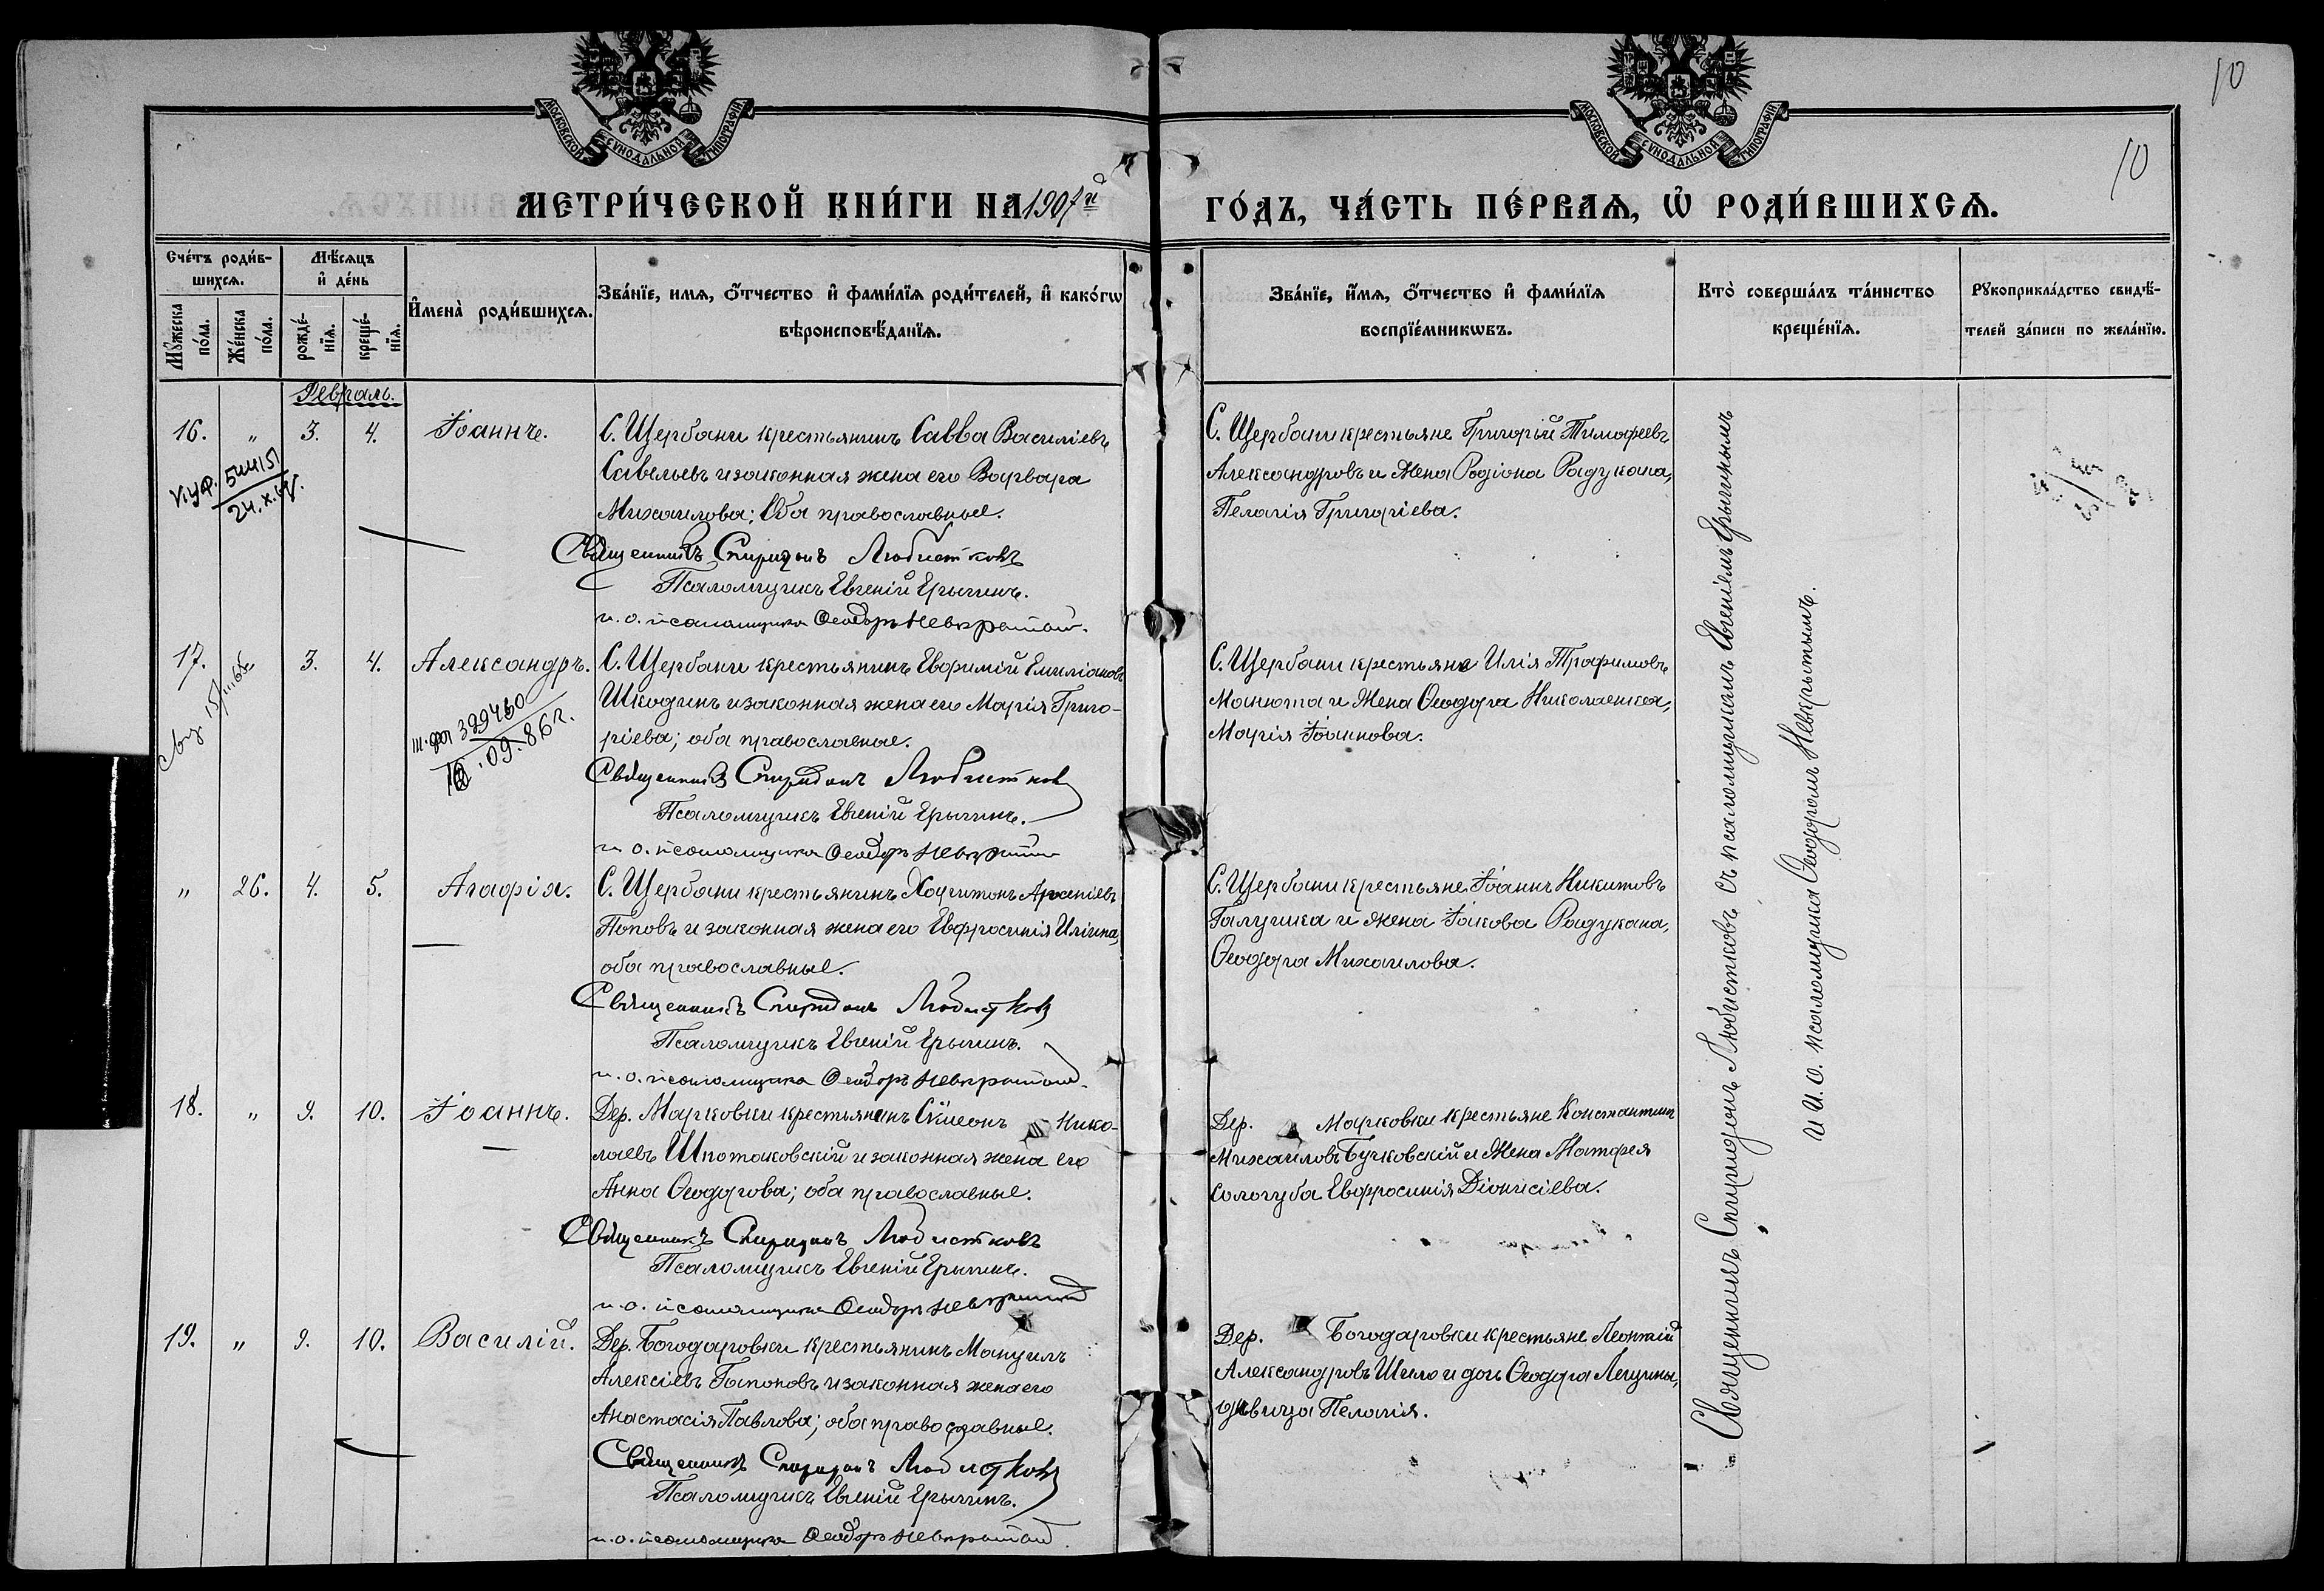 10
10
МОСКОВСКОЙ СѴНОДАЛЬНОЙ ТИПОГРАФІИ
МОСКОВСКОЙ СѴНОДАЛЬНОЙ ТИПОГРАФІИ
МЕТРИ́ЧЕСКОЙ КНИ́ГИ НА 1907й
ГО́ДЪ, ЧА́СТЬ ПЕ́РВАѦ, Ѽ РОДИ́ВШИХСѦ.
Сче́тъ роди́в-
шихсѧ.
Мꙋ́жеска по́ла.
Же́нска по́ла.
Мѣ́сяцъ
и҆ де́нь
рожде́-
нїѧ.
креще́-
нїѧ.
И҆мена̀ роди́вшихсѧ.
Зва́нїе, имѧ, о҆́тчество и҆ фами́лїѧ роди́телей, и҆ како́гѡ
вѣроисповѣ́данїѧ.
Зва́нїе, и҆́мѧ, о҆́тчество и҆ фами́лїѧ
воспрїе́мникѡвъ.
Кто̀ соверша́лъ та́инство
креще́нїѧ.
Рꙋкоприкла́дство свидѣ́-
телей за́писи по жела́нїю.
Февраль.
16. „ 3. 4. Іоаннъ.
С. Щербани крестьянинъ Савва Василіевъ
Савельевъ и законная жена его Варвара
Михаилова; Оба православные.
Священникъ Спиридонъ Любистковъ
Псаломщикъ Евгеній Ерыгинъ.
и. о. псаломщика Ѳеодоръ Невкрытый.
С. Щербани крестьяне Григорій Тимофеевъ
Александровъ и Жена Родіона Радукана,
Пелагія Григоріева.
17. 3. 4. Александръ.
399460
09.86г.
С. Щербани крестьянинъ Евфимій Емиліановъ
Шкодинъ и законная жена его Марія Григо-
ріева; оба православные.
Священникъ Спиридонъ Любистков
Псаломщикъ Евгеній Ерыгинъ.
и. о. псаломщика Ѳеодоръ Невкрытый
С. Щербани крестьяне Илія Трофимовъ
Манюта и Жена Ѳеодора Николаенка,
Марія Іоаннова.
„ 26. 4. 5. Агафія.
С. Щербани крестьянинъ Харитонъ Арсеніевъ
Поповъ и законная жена его Евфросинія Иліина,
оба православные.
Священникъ Спиридонъ Любистков
Псаломщикъ Евгеній Ерыгинъ.
и. о. псаломщика Ѳеодоръ Невкрытый.
С. Щербани крестьяне Іоаннъ Никитовъ
Галушка и жена Іакова Радукана,
Ѳеодора Михаилова.
18. „ 9. 10. Іоаннъ.
Дер. Марковки крестьянинъ Сѵмеонъ Нико-
лаевъ Шпотаковскій и законная жена его
Анна Ѳеодорова; оба православные.
Священникъ Спиридонъ Любистковъ
Псаломщикъ Евгеній Ерыгинъ.
и. о. псаломщика Ѳеодоръ Невкрытый
Дер. Марковки крестьяне Константинъ
Михаиловъ Бучковскій и Жена Матфея
Сологуба Евфросинія Діонисіева.
19. „ 9. 10. Василій.
Дер. Богодаровки крестьянинъ Мануилъ
Алексіевъ Гапоновъ и законная жена его
Анастасія Павлова; оба православные.
Священникъ Спиридонъ Любистков
Псаломщикъ Евгеній Ерыгинъ.
и. о. псаломщика Ѳеодоръ Невкрытый
Дер. Богодаровки крестьяне Леонтій
Александровъ Шило и дочь Ѳеодора Лещины,
дѣвица Пелагія.
Священникъ Спиридонъ Любистковъ съ псаломщикамъ Евгеніемъ Ерыгинымъ
и И. о. псаломщика Ѳеодоромъ Невкрытымъ.